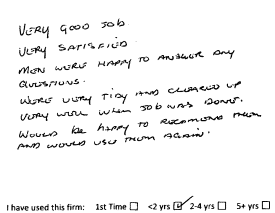 VERY GOOD JOB.
VERY SATISFIED
MEN WERE HAPPY TO ANSWER ANY
QUESTIONS.
WERE VERY TIDY AND CLEARED UP
VERY WELL WHEN JOB WAS DONE.
WOULD BE HAPPY TO RECOMMEND THEM
AND WOULD USE THEM AGAIN.
I have used this firm: 1st Time ☐ <2 yrs ☑ 2-4 yrs ☐ 5+ yrs ☐